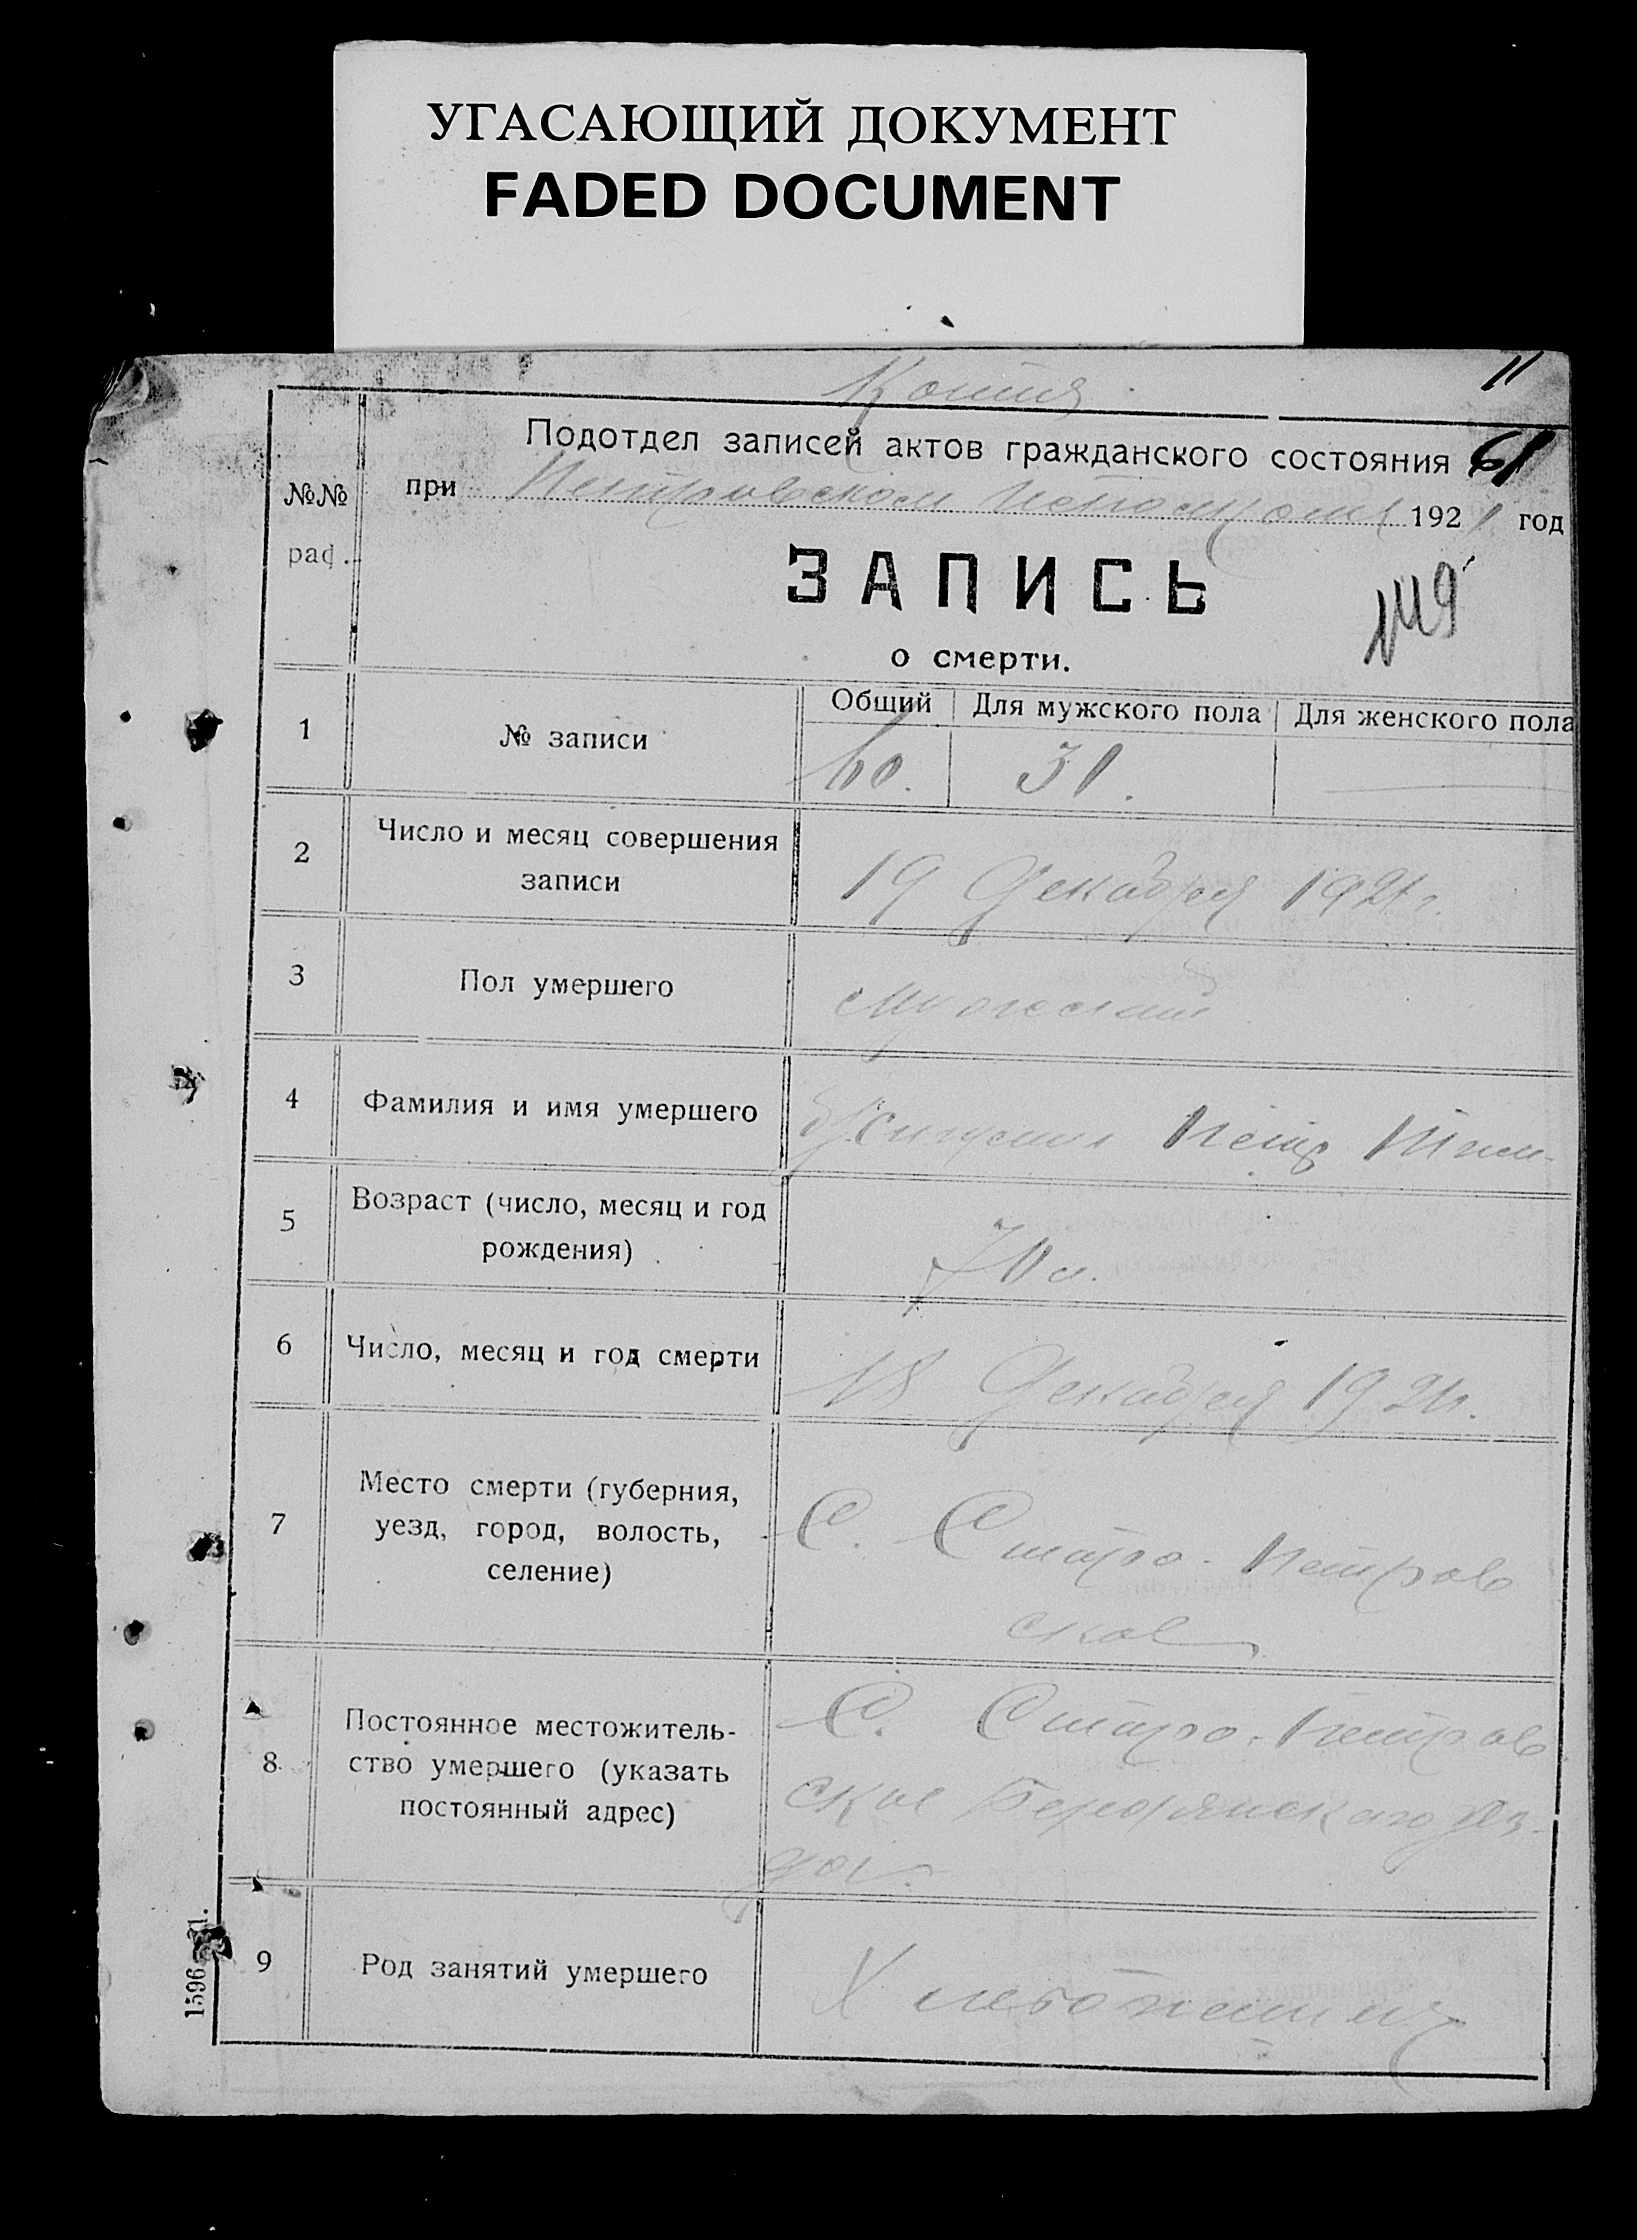 УГАСАЮЩИЙ ДОКУМЕНТ
FADED DOCUMENT
Копия
11
Подотдел записей актов гражданского состояния
61
№№
раф.
при Петровском Исполкоме 1921 год
ЗАПИСЬ
149
о смерти.
Общий Для мужского пола Для женского пола
1 № записи 60. 31. —
2 Число и месяц совершения
записи
19 Декабря 1921 г.
3 Пол умершего Мужеский
4 Фамилия и имя умершего Петр
5 Возраст (число, месяц и год
рождения)
70 л.
6 Число, месяц и год смерти 18 Декабря 1921 г.
7 Место смерти (губерния,
уезд, город, волость,
селение)
С. Старо-Петров
ское
8 Постоянное местожитель-
ство умершего (указать
постоянный адрес)
С. Старо-Петров
ское Бердянского уез-
да.
9 Род занятий умершего Хлебопашец
1596